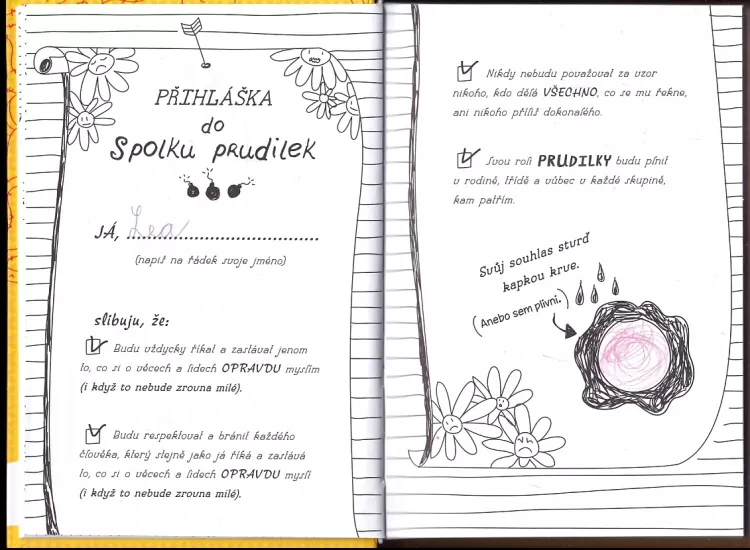 PŘIHLÁŠKA
do
Spolku prudilek
JÁ, Lea
(napiš na řádek svoje jméno)
slibuju, že:
Budu vždycky říkal a zastával jenom
to, co si o věcech a lidech OPRAVDU myslím
(i když to nebude zrovna milé).
Budu respektoval a bránil každého
člověka, který stejně jako já říká a zastává
to, co si o věcech a lidech OPRAVDU myslí
(i když to nebude zrovna milé).
Nikdy nebudu považoval za vzor
nikoho, kdo dělá VŠECHNO, co se mu řekne,
ani nikoho příliš dokonalého.
Svou roli PRUDILKY budu plnit
v rodině, třídě a vůbec v každé skupině,
kam patřím.
Svůj souhlas stvrď
kapkou krve.
(Anebo sem plivni.)